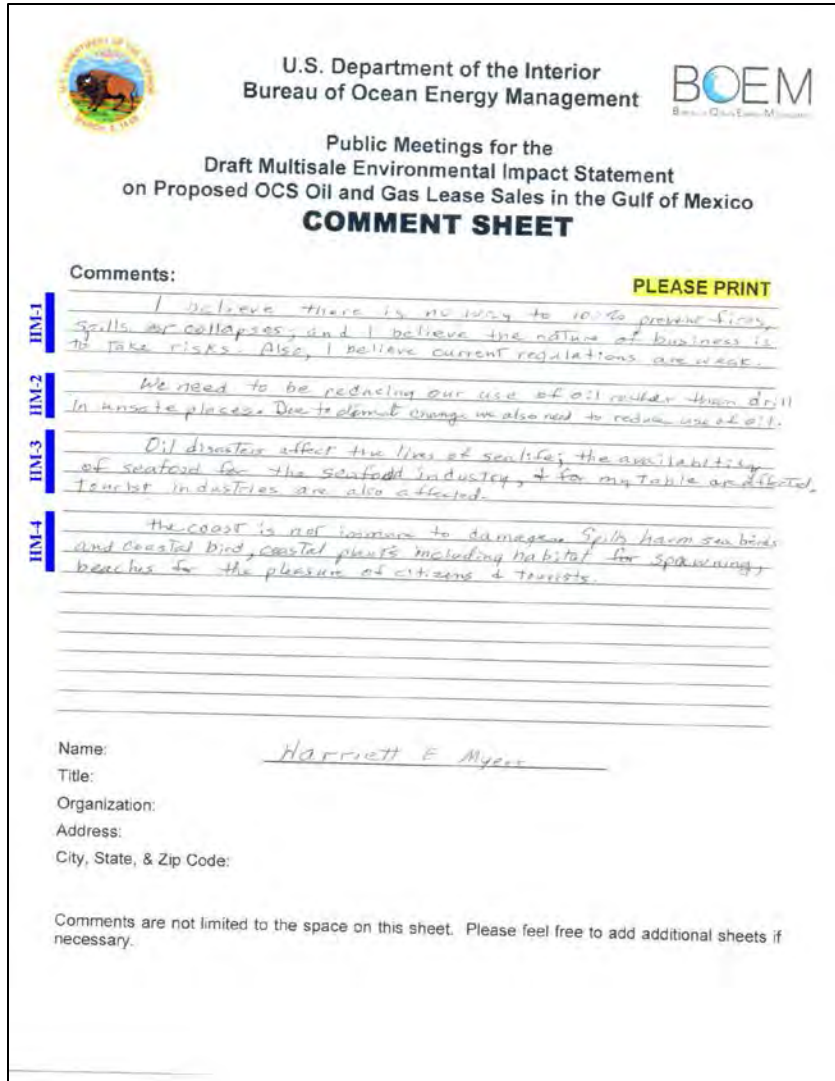 U.S. Department of the Interior
Bureau of Ocean Energy Management
BOEM
Public Meetings for the
Draft Multisale Environmental Impact Statement
on Proposed OCS Oil and Gas Lease Sales in the Gulf of Mexico
COMMENT SHEET
Comments:
PLEASE PRINT
HM-1
I believe there is no way to 100% prevent fires,
spills or collapses, and I believe the nature of business is
to take risks. Also, I believe current regulations are weak.
HM-2
We need to be reducing our use of oil rather than drill
in unsafe places. Due to change we also need to reduce use of oil.
HM-3
Oil disasters affect the lives of sealife; the availability
of seafood for the seafood industry, & for my table are affected.
Tourist industries are also affected.
HM-4
The coast is not immune to damage. Spills harm sea birds
and coastal bird, coastal plants including habitat for spawning,
beaches for the pleasure of citizens & tourists.
Name: Harriett E Myers
Title:
Organization:
Address:
City, State, & Zip Code:
Comments are not limited to the space on this sheet. Please feel free to add additional sheets if
necessary.